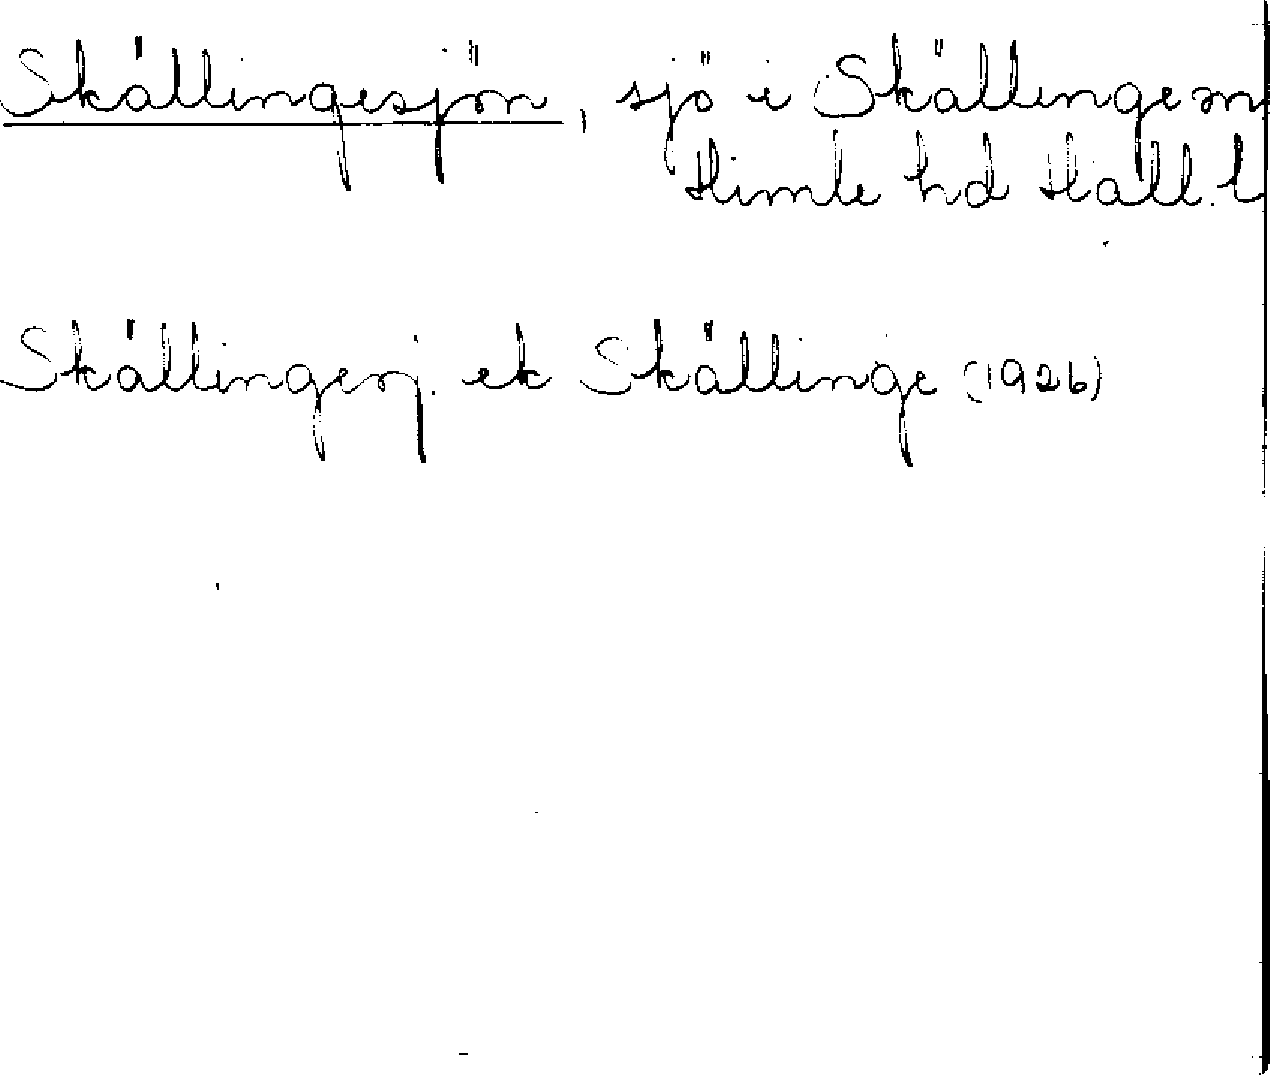 Skällingesjön, sjö i Skällinge sn
Himle hd Hall. l
Skällingesj. ek Skällinge (1926)